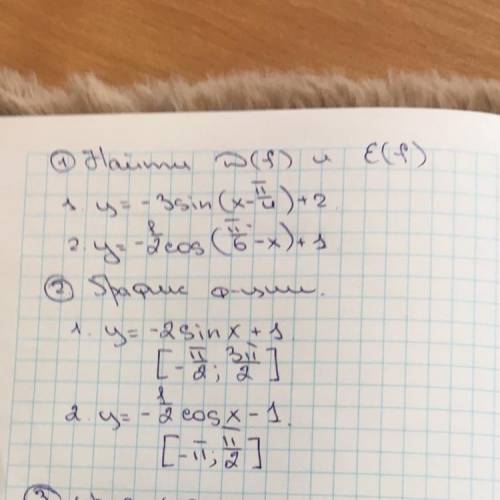 ① Найти D(f) и E(f)
1. y = -3sin(x-π/4)+2
2. y = -1/2cos(π/6-x)+1
② График ф-ции.
1. y = -2sinx+1
[-π/2; 3π/2]
2. y = -1/2cosx-1.
[-π; π/2]
③